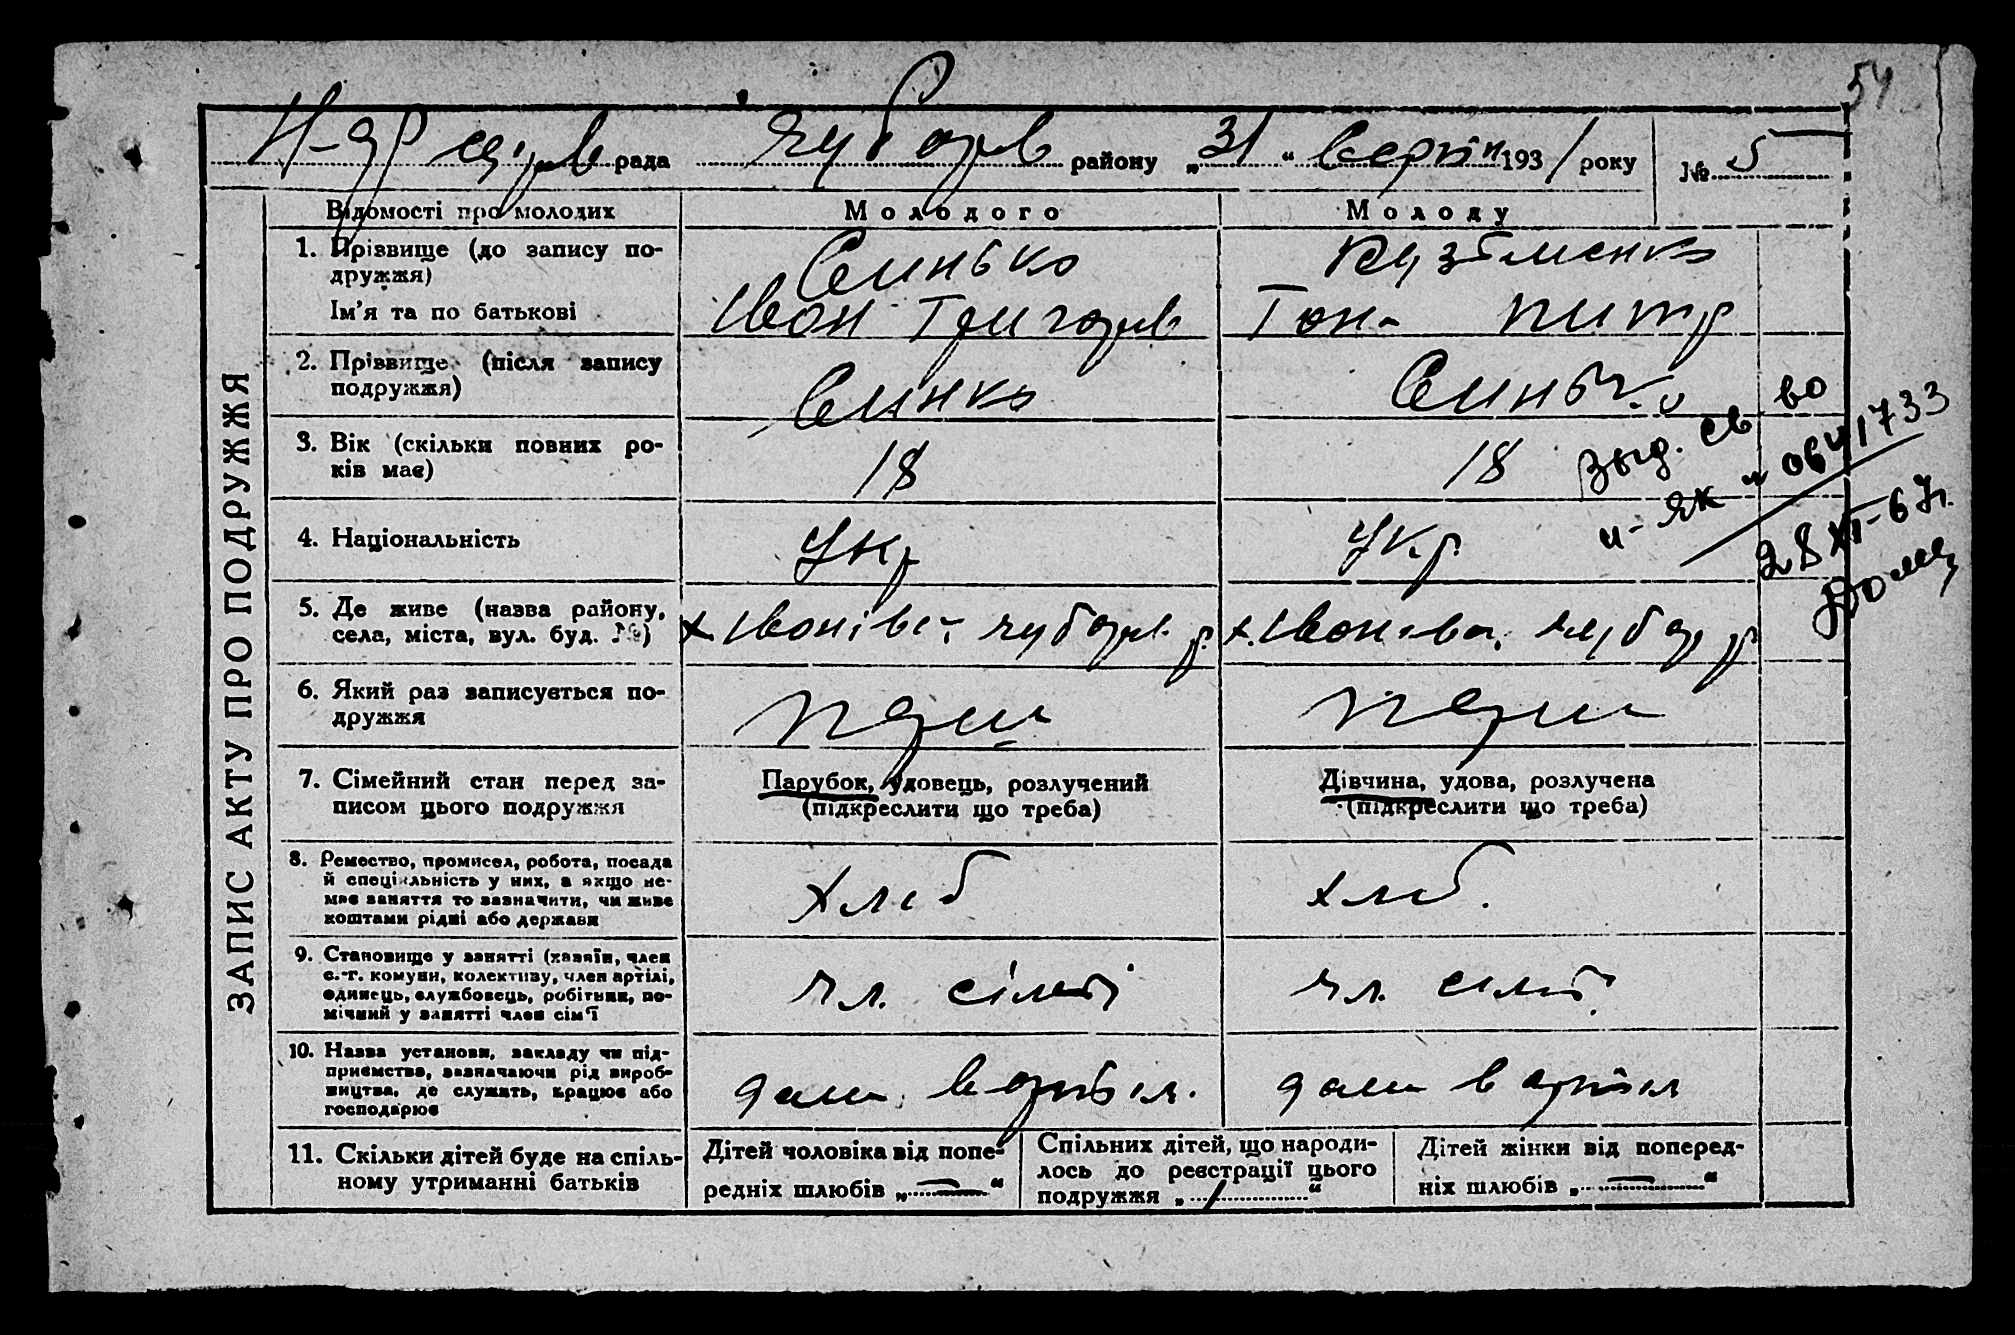 54
рада Чубарів району „31“ серпн 1931 року № 5
ЗАПИС АКТУ ПРО ПОДРУЖЖЯ
Відомості про молодих
Молодого
Молоду
1. Прізвище (до запису по-
дружжя)
Ім'я та по батькові
Синько
Іван Григорів
Кузьменко
Тон. Питр
2. Прізвище (після запису
подружжя)
Синко
Синько
3. Вік (скільки повних ро-
ків має)
18
18
4. Національність
Укр
Укр.
5. Де живе (назва району,
села, міста, вул. буд. №)
х Іванівка Чубарів. р.
х. Іванівка, Чубар р
6. Який раз записується по-
дружжя
перш
перш
7. Сімейний стан перед за-
писом цього подружжя
Парубок, удовець, розлучений
(підкреслити що треба)
Дівчина, удова, розлучена
(підкреслити що треба)
8. Ремество, промисел, робота, посада
й спеціяльність у них, а якщо не-
має заняття то зазначити, чи живе
коштами рідні або держави
хліб
хліб.
9. Становище у занятті (хазяїн, член
с.-г. комуни, колективу, член артілі,
одинець, службовець, робітник, по-
мічний у занятті член сім'ї
чл. сімї
чл. сімї
10. Назва установи, закладу чи під-
приємства, зазначаючи рід вироб-
ництва, де служить, працює або
господарює
в артіл.
в артіл
11. Скільки дітей буде на спіль-
ному утриманні батьків
Дітей чоловіка від попе-
редніх шлюбів „ — “
Спільних дітей, що народи-
лось до реєстрації цього
подружжя „ / “
Дітей жінки від поперед-
ніх шлюбів „ — “
Выд. св во
и-ЯК № 0641733
28 XI-67г.